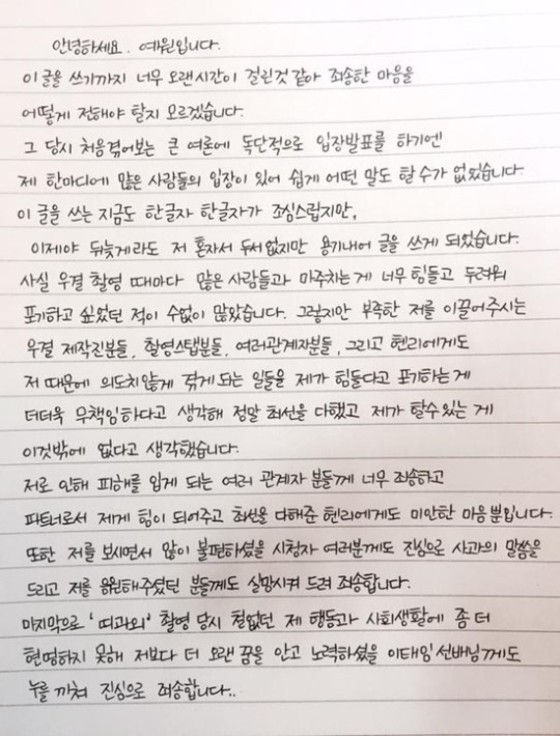 안녕하세요. 예원입니다.
이 글을 쓰기까지 너무 오랜시간이 걸린것 같아 죄송한 마음을
어떻게 전해야 할지 모르겠습니다.
그 당시 처음겪어보는 큰 여론에 독단적으로 입장발표를 하기엔
제 한마디에 많은 사람들의 입장이 있어 쉽게 어떤 말도 할 수가 없었습니다.
이 글을 쓰는 지금도 한글자 한글자가 조심스럽지만,
이제야 뒤늦게라도 저 혼자서 두서없지만 용기내어 글을 쓰게 되었습니다.
사실 우결 촬영 때마다 많은 사람들과 마주치는게 너무 힘들고 두려워
포기하고 싶었던 적이 수없이 많았습니다. 그렇지만 부족한 저를 이끌어주시는
우결 제작진분들, 촬영스탭분들, 여러관계자분들, 그리고 헨리에게도
저 때문에 의도치않게 겪게 되는 일들을 제가 힘들다고 포기하는게
더더욱 무책임하다고 생각해 정말 최선을 다했고 제가 할수있는 게
이것밖에 없다고 생각했습니다.
저로 인해 피해를 입게 되는 여러 관계자 분들께 너무 죄송하고
파트너로서 제게 힘이 되어주고 최선을 다해준 헨리에게도 미안한 마음뿐입니다.
또한 저를 보시면서 많이 불편하셨을 시청자 여러분께도 진심으로 사과의 말씀을
드리고 저를 응원해주셨던 분들께도 실망시켜 드려 죄송합니다.
마지막으로 '띠과외' 촬영 당시 철없던 제 행동과 사회생활에 좀 더
현명하지 못해 저보다 더 오랜 꿈을 안고 노력하셨을 이태임선배님께도
누를 끼쳐 진심으로 죄송합니다..